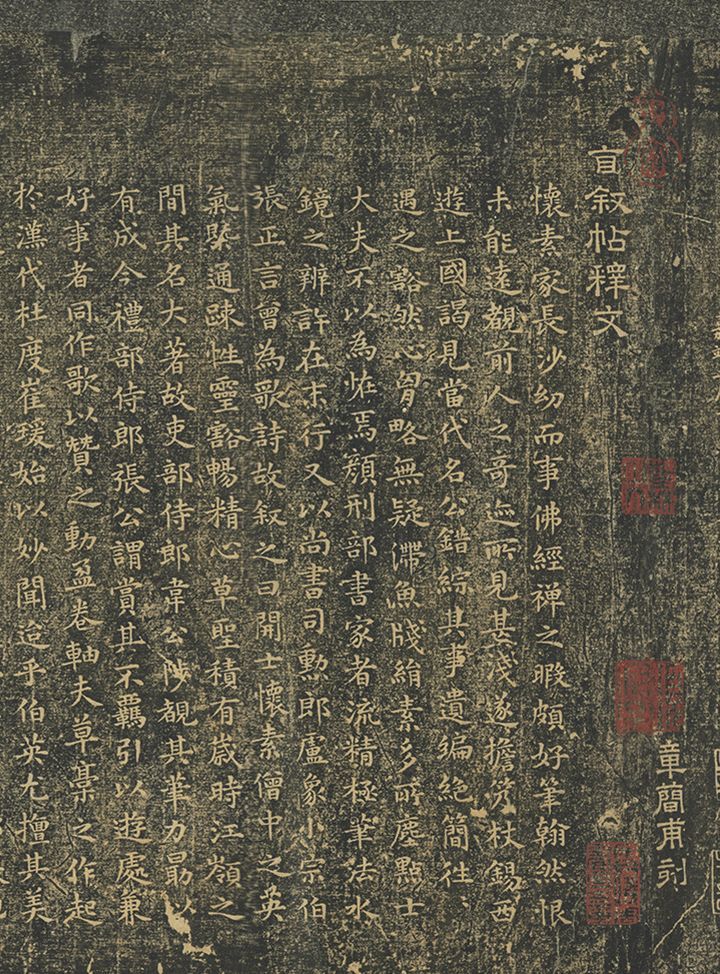 自叙帖釋文
章簡甫刻
懷素家長沙幼而事佛經禪之暇頗好筆翰然恨
未能遠覩前人之奇迹所見甚淺遂擔笈杖錫西
遊上國謁見當代名公錯綜其事遺編絕簡往、
遇之豁然心胷略無疑滯魚牋絹素多所塵點士
大夫不以為恠焉顏刑部書家者流精極筆法水
鏡之辨許在末行又以尚書司勳郎盧象小宗伯
張正言曾為歌詩故叙之曰開士懷素僧中之英
氣槩通疎性靈豁暢精心草聖積有歲時江嶺之
間其名大著故吏部侍郎韋公陟覩其筆力勗以
有成今禮部侍郎張公謂賞其不羈引以遊處兼
好事者同作歌以贊之動盈卷軸夫草藁之作起
於漢代杜度崔瑗始以妙聞迨乎伯英尤擅其美